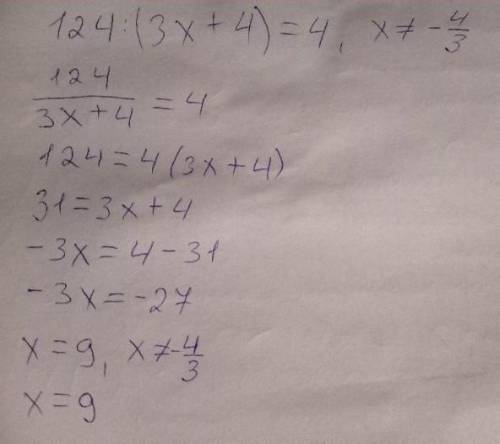 124:(3x+4)=4, x≠-4/3
124/(3x+4)=4
124=4(3x+4)
31=3x+4
-3x=4-31
-3x=-27
x=9, x≠-4/3
x=9